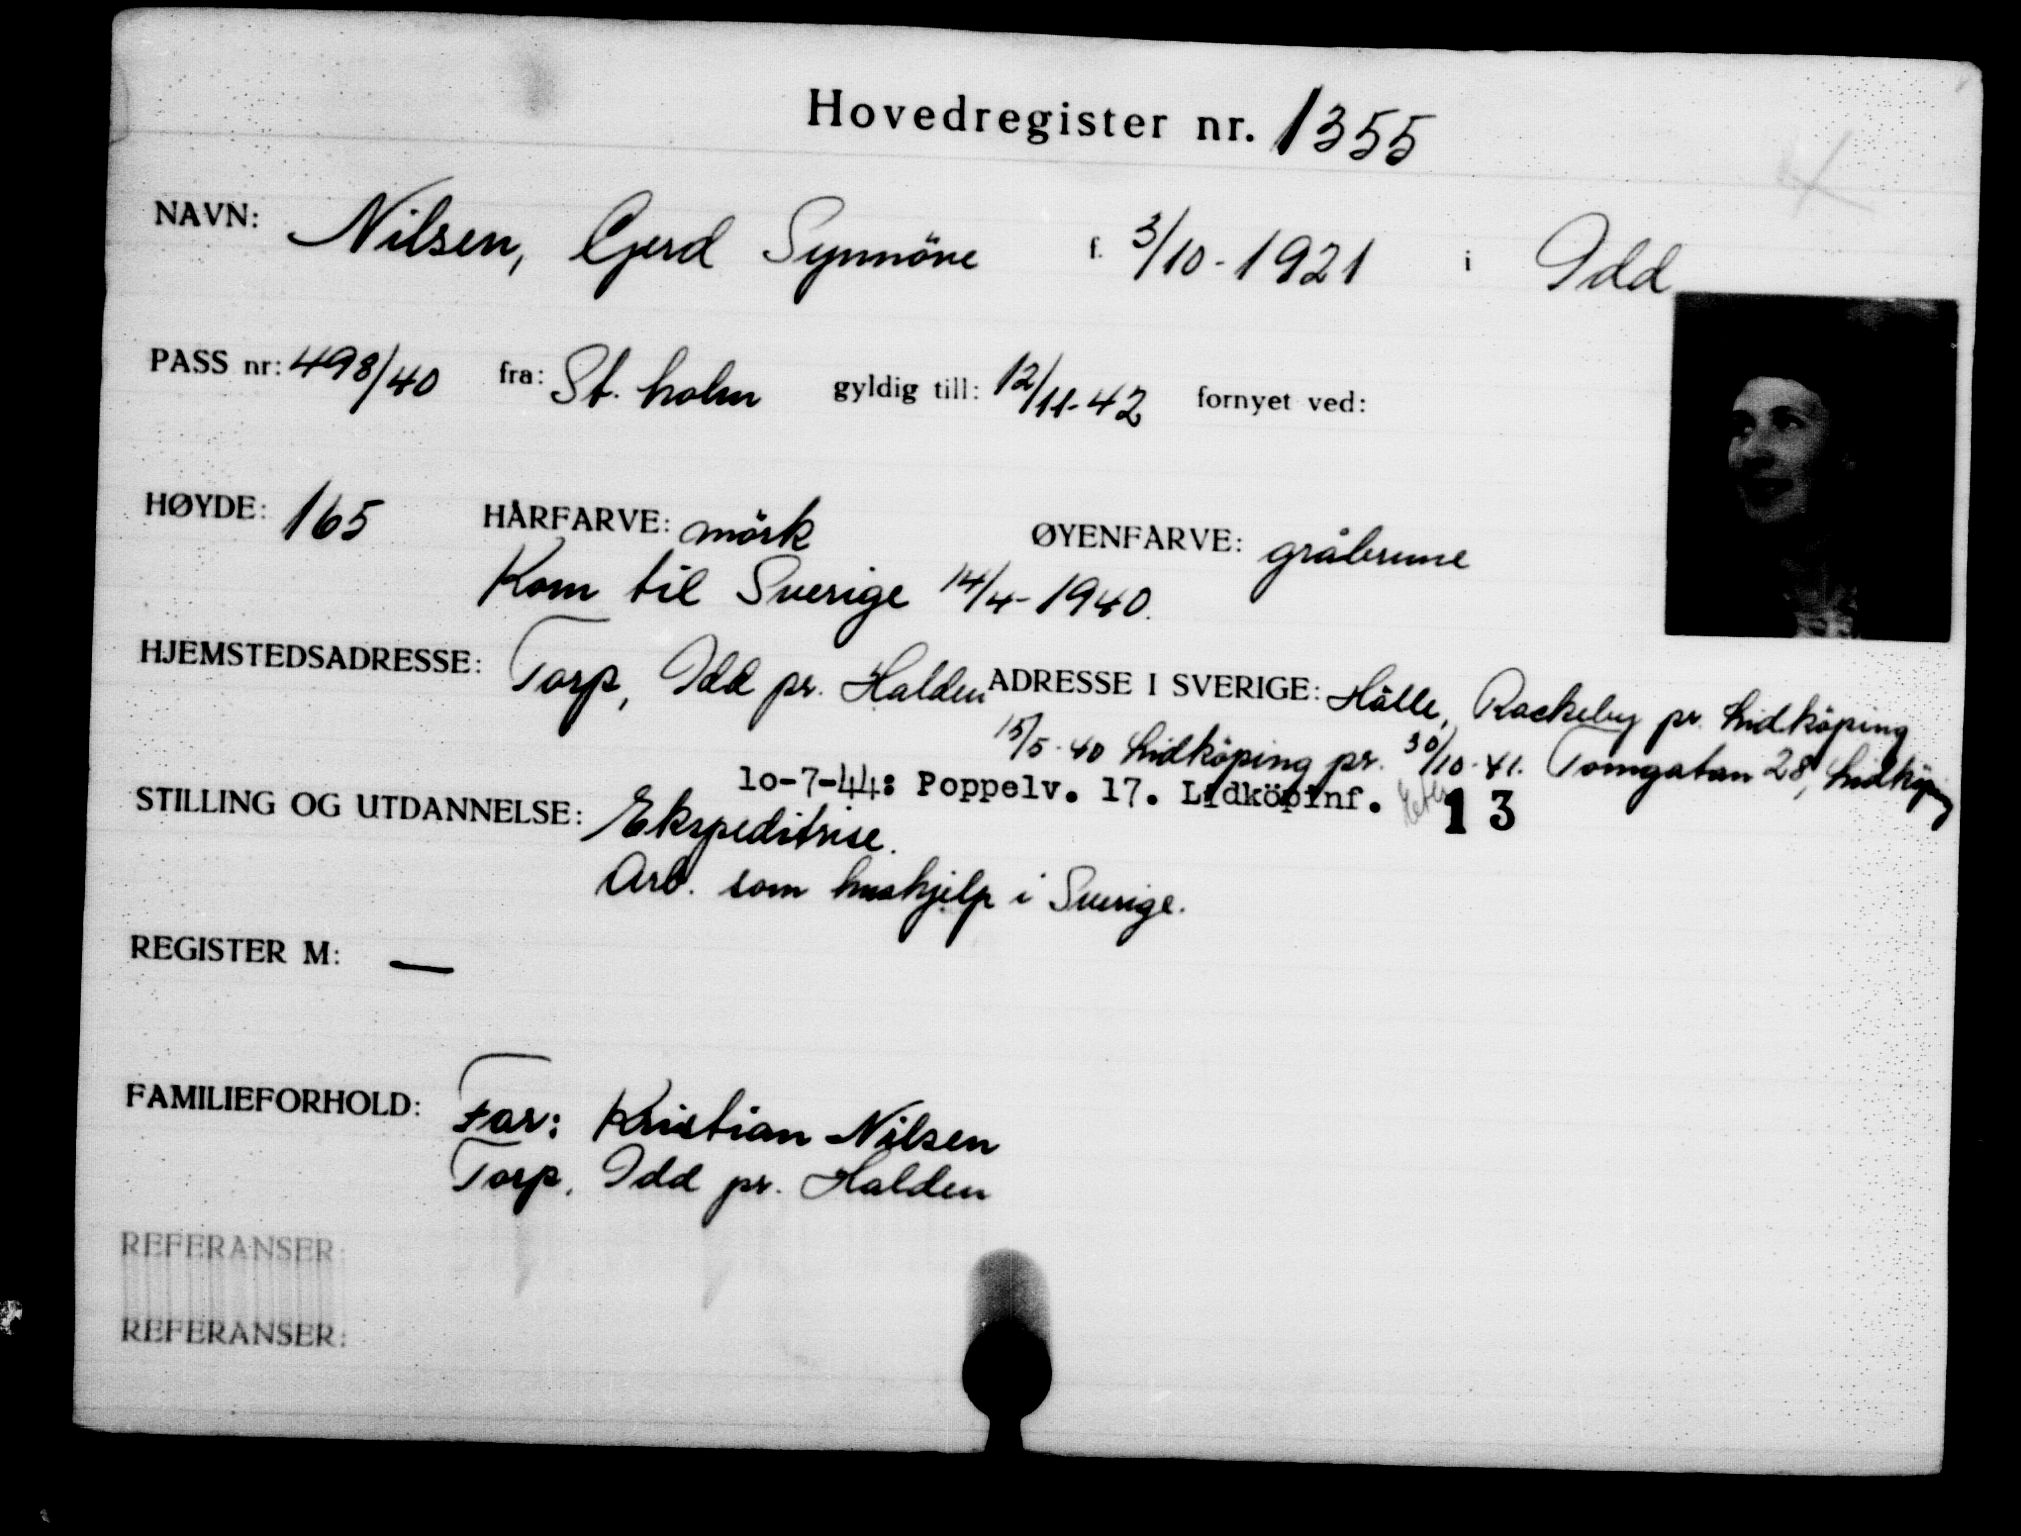 Hovedregister nr. 1355
NAVN: Nilsen, Gerd Synnöve f. 3/10-1921 i Idd
PASS nr: 498/40 fra: St. holm gyldig till: 12/11-42 fornyet ved:
HØYDE: 165 HÅRFARVE: mörk ØYENFARVE: gråbrune
Kom til Sverige 14/4-1940.
HJEMSTEDSADRESSE: Torp, Idd pr. Halden ADRESSE I SVERIGE: Hälle, Rackeby pr. Lidköping
15/5-40 Lidköping pr. 30/10-41. Torngatan 28, Lidköping
10-7-44: Poppelv. 17. Lidköpinf. 13
STILLING OG UTDANNELSE: Ekspeditrise.
Arb. som hushjelp i Sverige.
REGISTER M: —
FAMILIEFORHOLD: Far: Kristian Nilsen
Torp, Idd pr. Halden
REFERANSER:
REFERANSER: